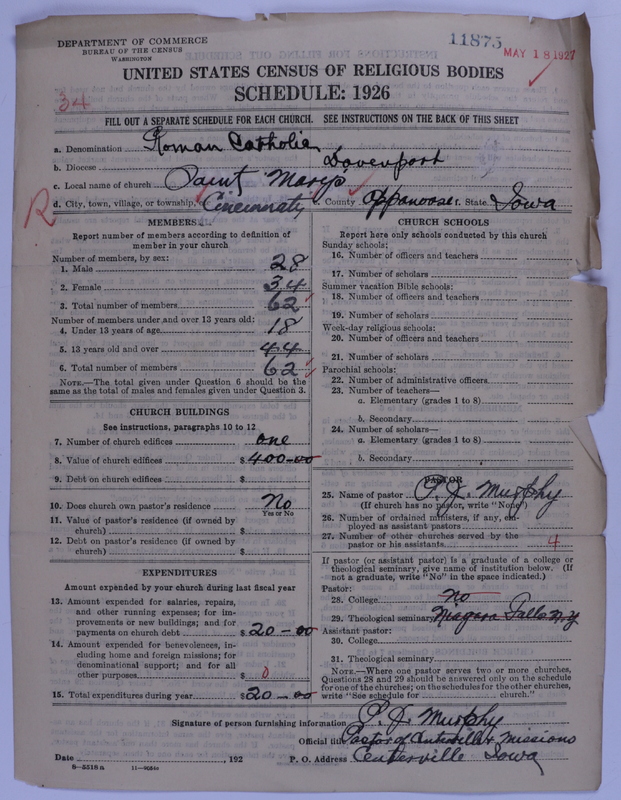 DEPARTMENT OF COMMERCE
BUREAU OF THE CENSUS
WASHINGTON
11875
MAY 18 1927
UNITED STATES CENSUS OF RELIGIOUS BODIES
SCHEDULE: 1926
34
FILL OUT A SEPARATE SCHEDULE FOR EACH CHURCH. SEE INSTRUCTIONS ON THE BACK OF THIS SHEET
a. Denomination Roman Catholic
b. Diocese Davenport
c. Local name of church Saint Marys
d. City, town, village, or township, Cincinnaty e. County Appanoose f. State. Iowa
R
MEMBERS
Report number of members according to definition of
member in your church
Number of members, by sex:
1. Male 28
2. Female 34
3. Total number of members 62
Number of members under and over 13 years old:
4. Under 13 years of age 18
5. 13 years old and over 44
6. Total number of members 62
NOTE.—The total given under Question 6 should be the
same as the total of males and females given under Question 3.
CHURCH BUILDINGS
See instructions, paragraphs 10 to 12
7. Number of church edifices one
8. Value of church edifices $400-00
9. Debt on church edifices $
10. Does church own pastor's residence No
Yes or No
11. Value of pastor's residence (if owned by
church) $
12. Debt on pastor's residence (if owned by
church) $
EXPENDITURES
Amount expended by your church during last fiscal year
13. Amount expended for salaries, repairs,
and other running expenses; for im-
provements or new buildings; and for
payments on church debt $20-00
14. Amount expended for benevolences, in-
cluding home and foreign missions; for
denominational support; and for all
other purposes $ 0
15. Total expenditures during year $20-00
CHURCH SCHOOLS
Report here only schools conducted by this church
Sunday schools:
16. Number of officers and teachers
17. Number of scholars
Summer vacation Bible schools:
18. Number of officers and teachers
19. Number of scholars
Week-day religious schools:
20. Number of officers and teachers
21. Number of scholars
Parochial schools:
22. Number of administrative officers
23. Number of teachers—
a. Elementary (grades 1 to 8)
b. Secondary
24. Number of scholars—
a. Elementary (grades 1 to 8)
b. Secondary
PASTOR
25. Name of pastor P. J. Murphy
(If church has no pastor, write "None")
26. Number of ordained ministers, if any, em-
ployed as assistant pastors
27. Number of other churches served by the
pastor or his assistants 4
If pastor (or assistant pastor) is a graduate of a college or
theological seminary, give name of institution below. (If
not a graduate, write "No" in the space indicated.)
Pastor:
28. College No
29. Theological seminary Niagara Falls N.Y
Assistant pastor:
30. College
31. Theological seminary
NOTE.—Where one pastor serves two or more churches,
Questions 28 and 29 should be answered only on the schedule
for one of the churches; on the schedules for the other churches,
write "See schedule for church."
Signature of person furnishing information P. J. Murphy
Official title Pastor of Centerville & Missions
Date , 192 P. O. Address Centerville Iowa
8—5518 a 11—9054a